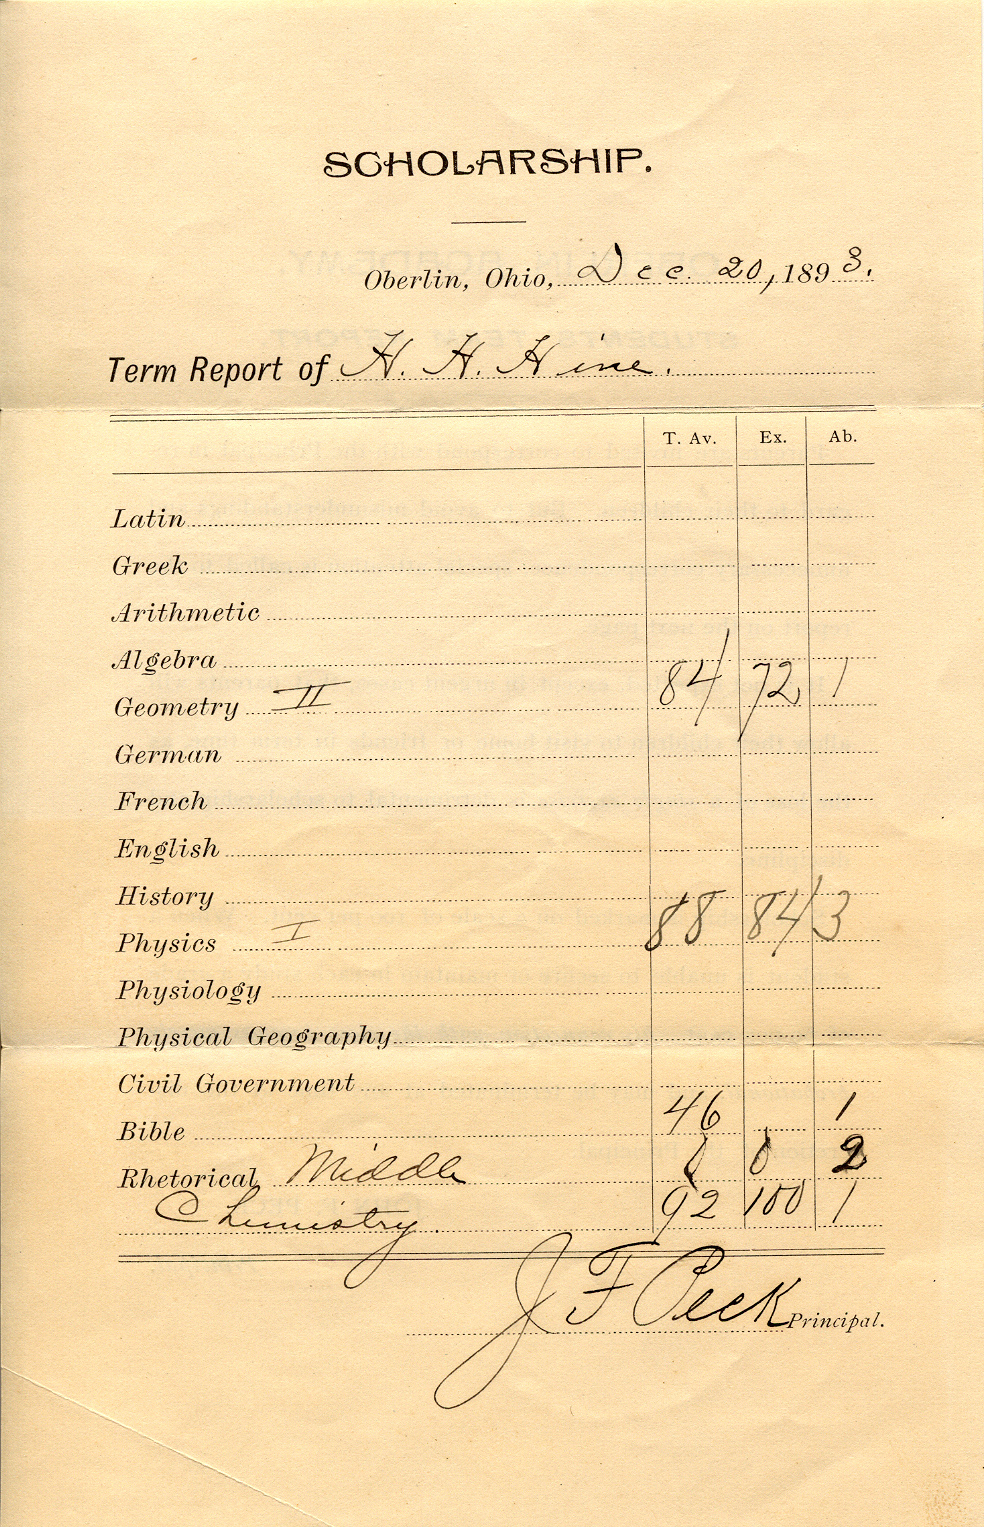 SCHOLARSHIP.
Oberlin, Ohio, Dec. 20, 1893.
Term Report of H. H. Hine.
T. Av. Ex. Ab.
Latin
Greek
Arithmetic
Algebra
Geometry II 84 72 1
German
French
English
History
Physics I 88 84 3
Physiology
Physical Geography
Civil Government
Bible 46 1
Rhetorical Middle 2
Chemistry. 92 100 1
J F Peck Principal.